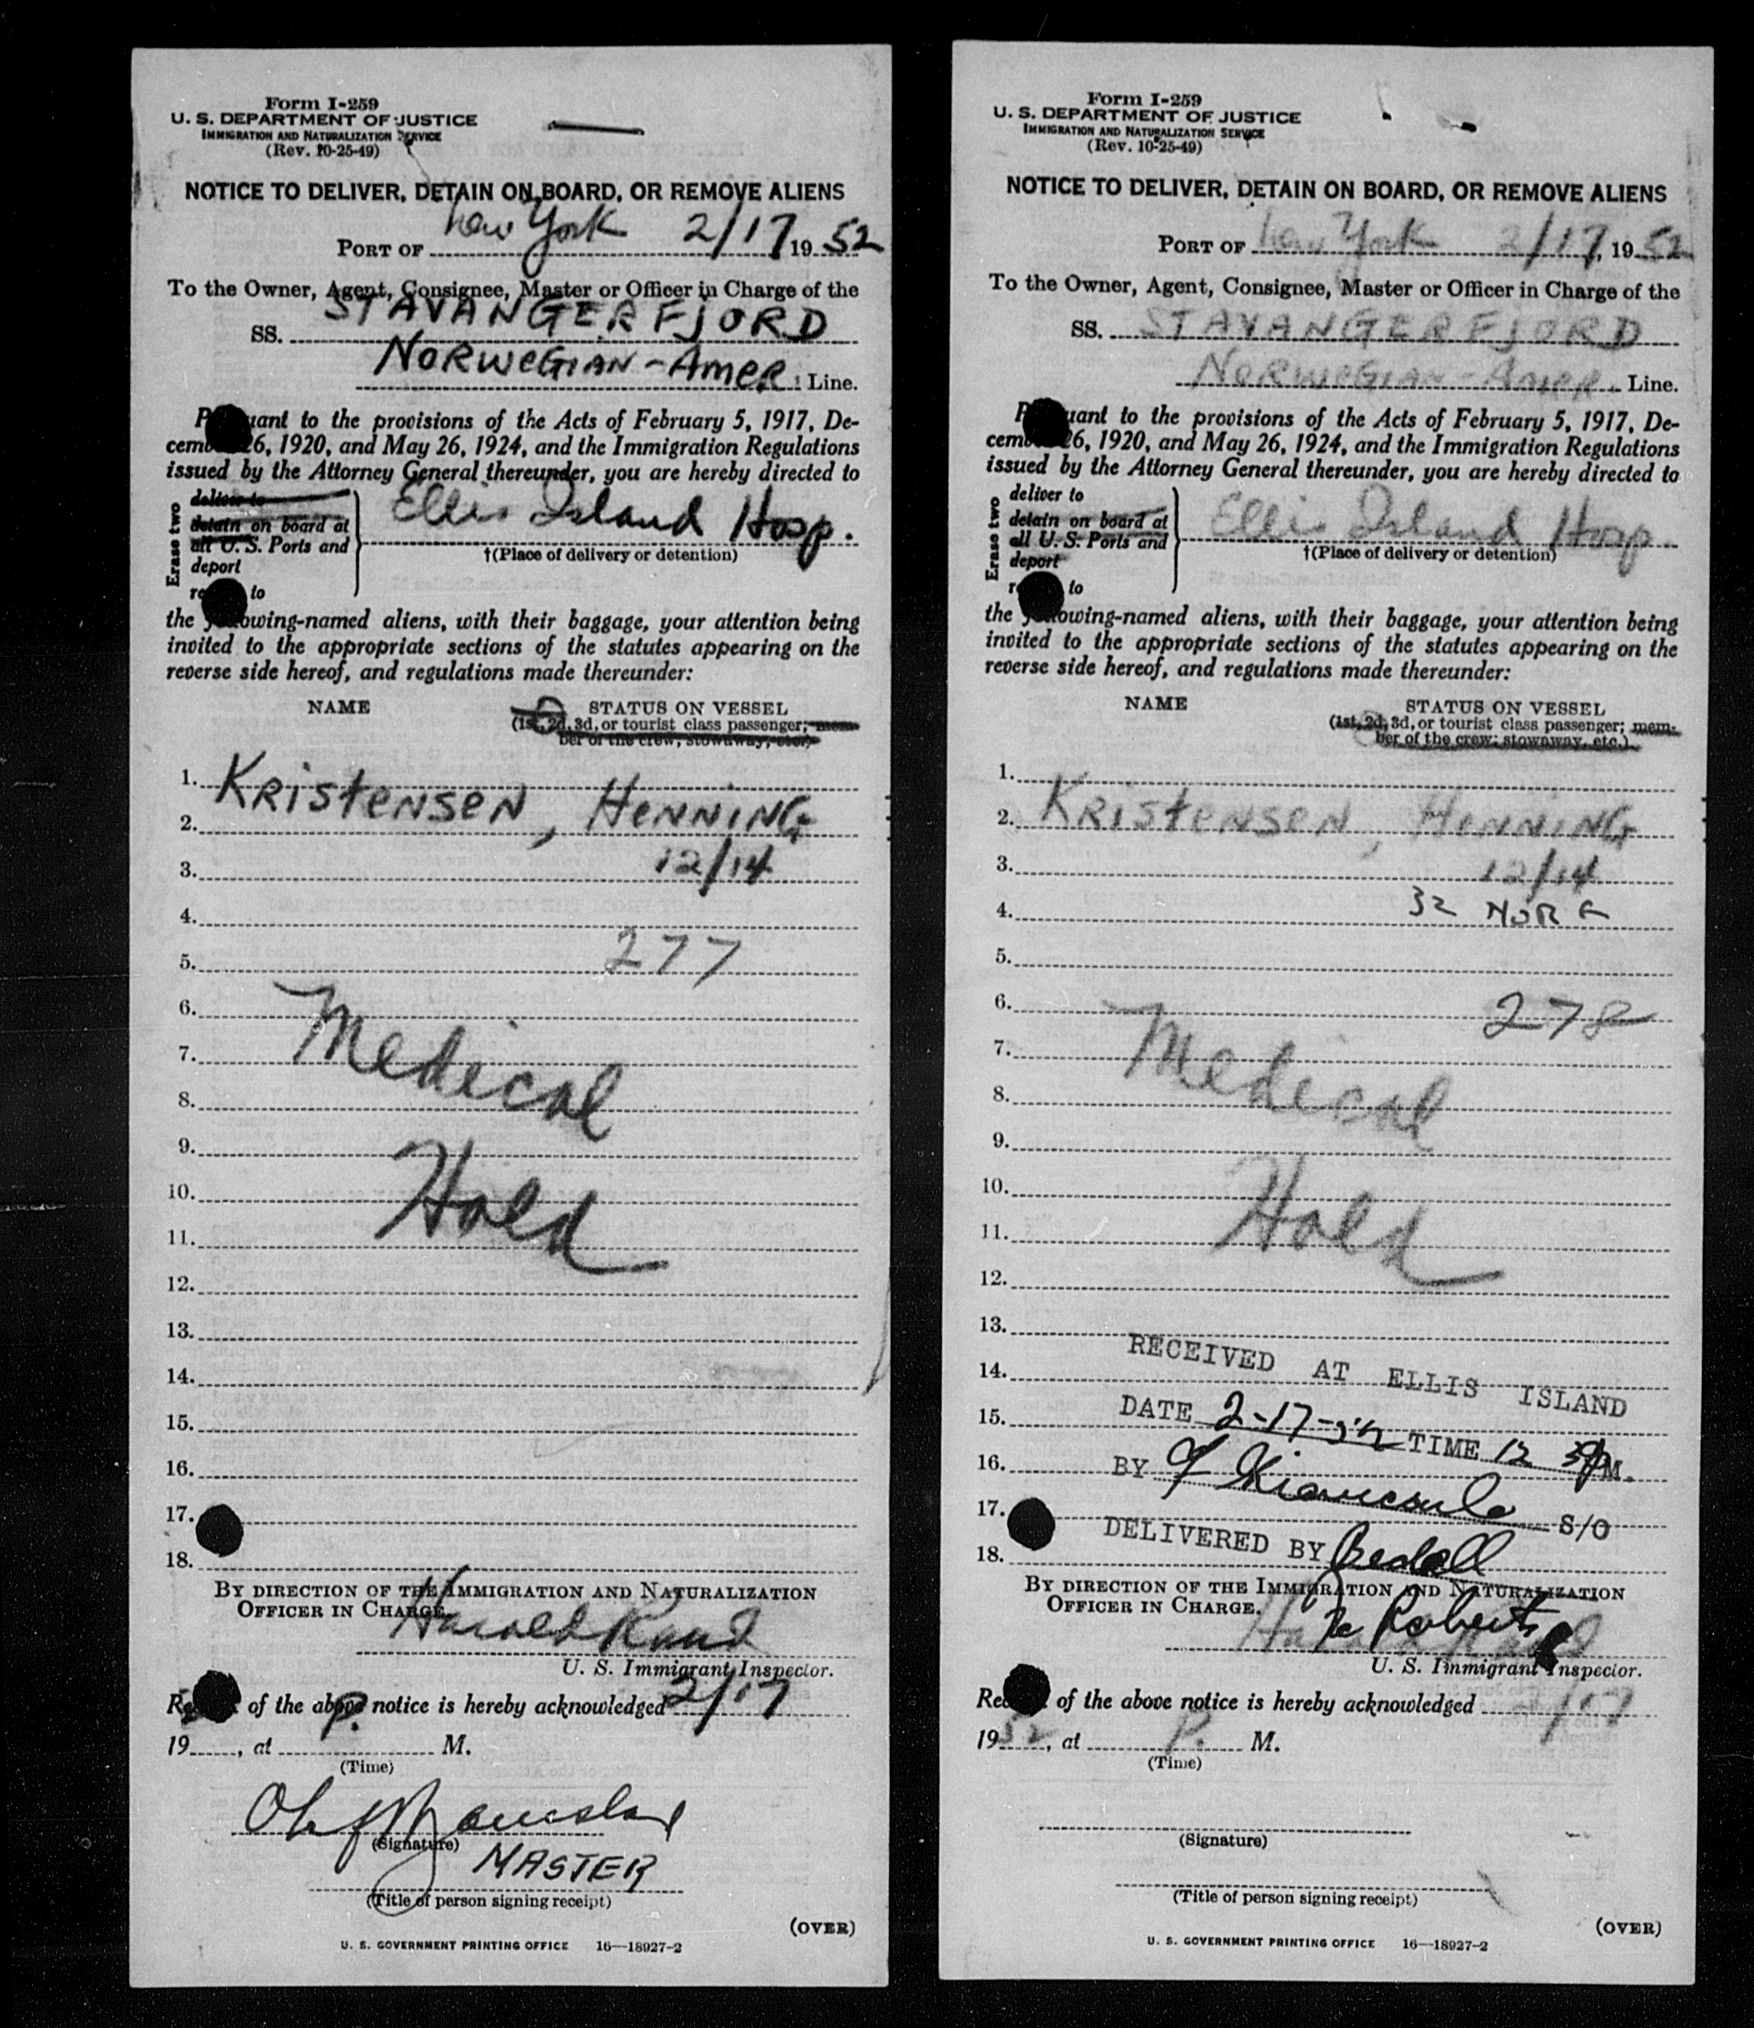 Form I-259
U. S. DEPARTMENT OF JUSTICE
IMMIGRATION AND NATURALIZATION SERVICE
(Rev. 10-25-49)
NOTICE TO DELIVER, DETAIN ON BOARD, OR REMOVE ALIENS
PORT OF New York 2/17, 19 52
To the Owner, Agent, Consignee, Master or Officer in Charge of the
SS. STAVANGERFJORD
NORWEGIAN-AMER. Line.
Pursuant to the provisions of the Acts of February 5, 1917, De-
cember 26, 1920, and May 26, 1924, and the Immigration Regulations
issued by the Attorney General thereunder, you are hereby directed to
Erase two
deliver to
detain on board at
all U. S. Ports and
deport
remove to
Ellis Island Hosp.
†(Place of delivery or detention)
the following-named aliens, with their baggage, your attention being
invited to the appropriate sections of the statutes appearing on the
reverse side hereof, and regulations made thereunder:
NAME STATUS ON VESSEL
(1st, 2d, 3d, or tourist class passenger; mem-
ber of the crew; stowaway, etc.)
1.
KRISTENSEN, HENNING
2.
3. 12/14
4.
5. 277
6.
Medical
7.
8.
9.
10.
Hold
11.
12.
13.
14.
15.
16.
17.
18.
BY DIRECTION OF THE IMMIGRATION AND NATURALIZATION
OFFICER IN CHARGE.
Harold Rand
U. S. Immigrant Inspector.
Receipt of the above notice is hereby acknowledged 2/17
19, at P. M.
(Time)
(Signature)
MASTER
(Title of person signing receipt)
(OVER)
U. S. GOVERNMENT PRINTING OFFICE 16—18927-2
Form I-259
U. S. DEPARTMENT OF JUSTICE
IMMIGRATION AND NATURALIZATION SERVICE
(Rev. 10-25-49)
NOTICE TO DELIVER, DETAIN ON BOARD, OR REMOVE ALIENS
PORT OF New York 2/17, 19 52
To the Owner, Agent, Consignee, Master or Officer in Charge of the
SS. STAVANGERFJORD
NORWEGIAN-AMER. Line.
Pursuant to the provisions of the Acts of February 5, 1917, De-
cember 26, 1920, and May 26, 1924, and the Immigration Regulations
issued by the Attorney General thereunder, you are hereby directed to
Erase two
deliver to
detain on board at
all U. S. Ports and
deport
remove to
Ellis Island Hosp.
†(Place of delivery or detention)
the following-named aliens, with their baggage, your attention being
invited to the appropriate sections of the statutes appearing on the
reverse side hereof, and regulations made thereunder:
NAME STATUS ON VESSEL
(1st, 2d, 3d, or tourist class passenger; mem-
ber of the crew; stowaway, etc.)
1.
2. KRISTENSEN, HENNING
3. 12/14
4. 32 NOR
5.
6. 278
7. Medical
8.
9.
10.
11. Hold
12.
13.
RECEIVED AT ELLIS ISLAND
14.
15. DATE 2-17-52 TIME 12 30 P M.
16. BY
17. S/O
DELIVERED BY
18.
BY DIRECTION OF THE IMMIGRATION AND NATURALIZATION
OFFICER IN CHARGE.
Roberts
Harold Rand
U. S. Immigrant Inspector.
Receipt of the above notice is hereby acknowledged 2/17
19 52, at P. M.
(Time)
(Signature)
(Title of person signing receipt)
(OVER)
U. S. GOVERNMENT PRINTING OFFICE 16—18927-2